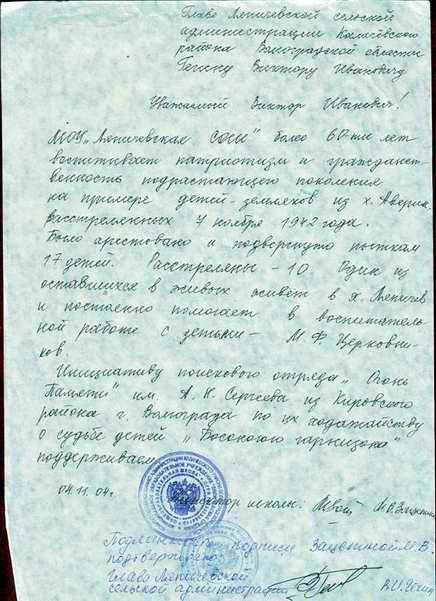 Главе Ляпичевской сельской
администрации Калачёвского
района Волгоградской области
Генску Виктору Ивановичу
Уважаемый Виктор Иванович!
МОУ „Ляпичевская СОШ" более 60-ти лет
воспитывает патриотизм и гражданст-
венность подрастающего поколения
на примере детей-земляков из х. Аверин,
расстрелянных 7 ноября 1942 года.
Было арестовано и подвергнуто пыткам
17 детей. Расстреляны - 10. Один из
оставшихся в живых живёт в х. Ляпичев
и постоянно помогает в воспитатель
ной работе с детьми - М. Ф. Церковни-
ков.
Инициативу поискового отряда „Огонь
Памяти" им. А. Н. Сергеева из Кировского
района г. Волгограда по их ходатайству
о судьбе детей „Босоногого гарнизона"
поддерживаем
04.11.04г. Директор школы:
Подлинность подписи М.В.
подтверждаю:
Глава Ляпичевской
сельской администрации